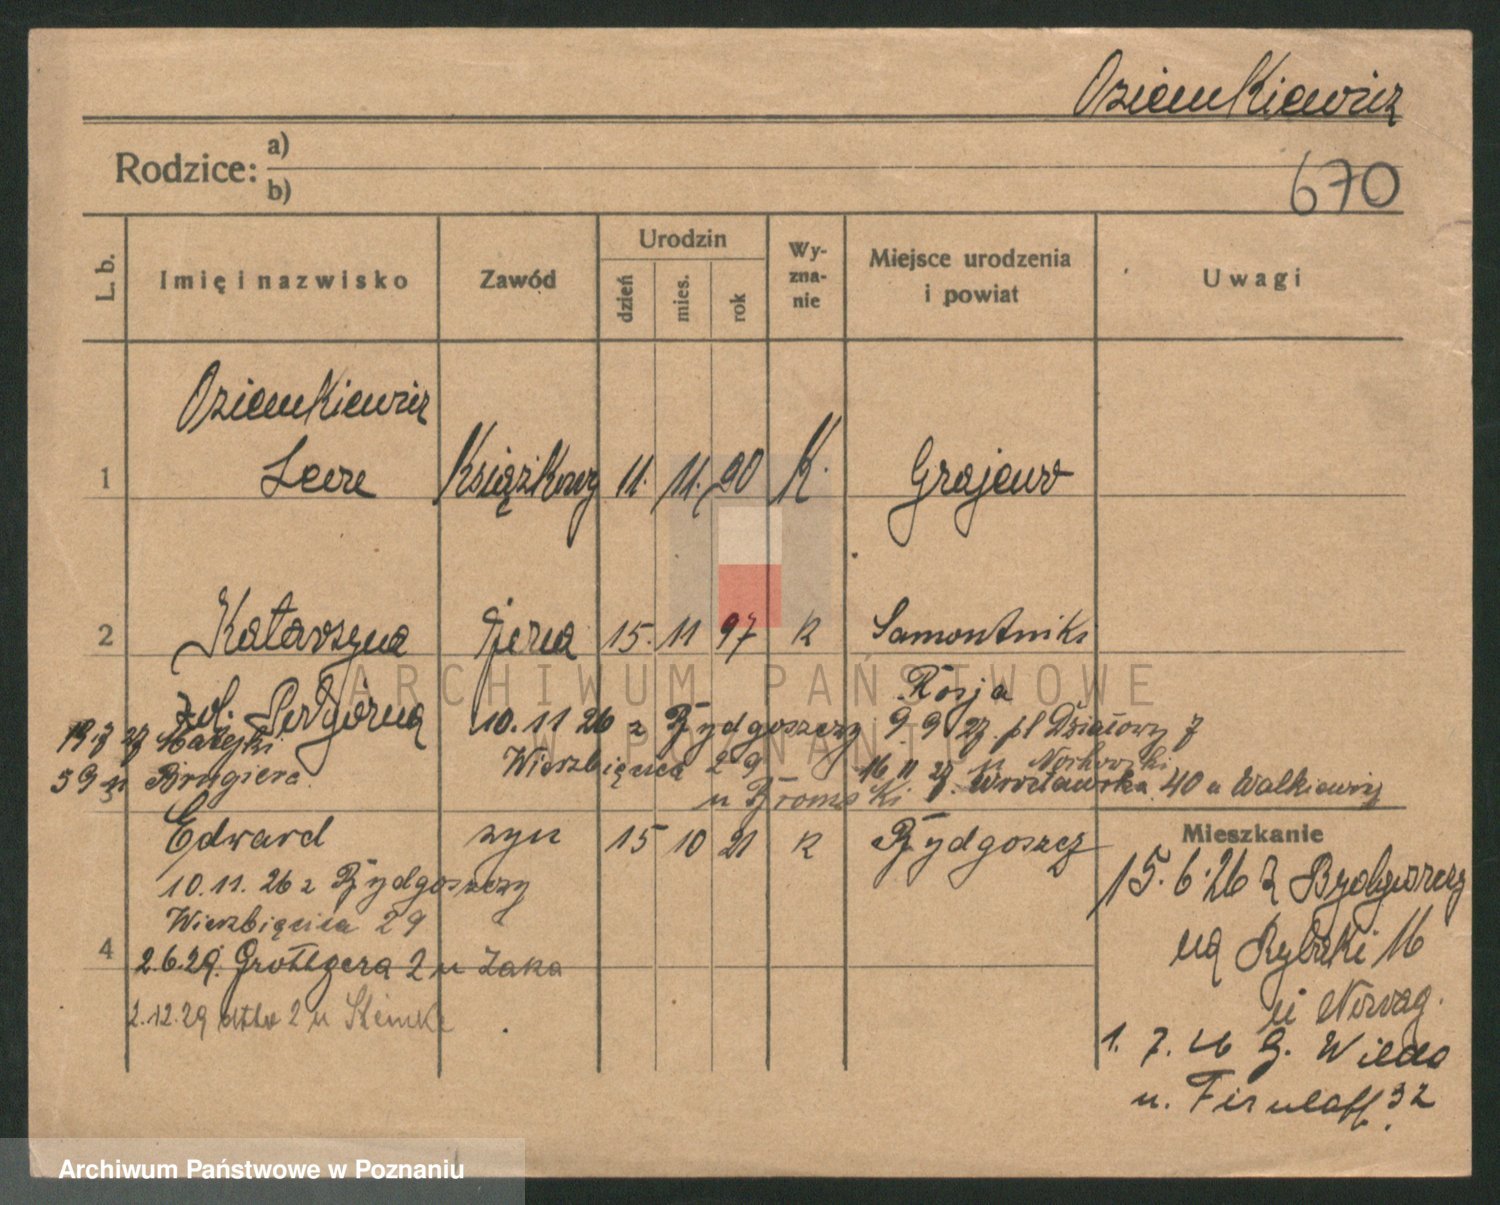 Oziemkiewicz
670
Rodzice: a)
b)
L. b. Imię i nazwisko Zawód Urodzin dzień mies. rok Wy-zna-nie Miejsce urodzenia i powiat Uwagi
Oziemkiewicz
1 Leon Książkowy 11. 11. 90 K. Grajewo
2 Katarzyna żona 15. 11 97 K Samontniki
zd. Rosja
19.7 27 Matejki 10.11 26 z Bydgoszczy 9 9 27. pl Działowy 7
5 9 u Wierzbięcice 29 16 11 27. u
3 u Wrocławska 40 u Walkiewicz
Edward syn 15 10 21 K Bydgoszcz
Mieszkanie
10.11. 26 z Bydgoszczy
15.6.26 z Bydgoszczy
Wierzbięcice 29
na Rybaki 16
4 2.6.29. Grottgera 2 u Żaka
u
2.12.29 2 u
1. 7. 26 G. Wilda
u. 32
ARCHIWUM PAŃSTWOWE
W POZNANIU
Archiwum Państwowe w Poznaniu